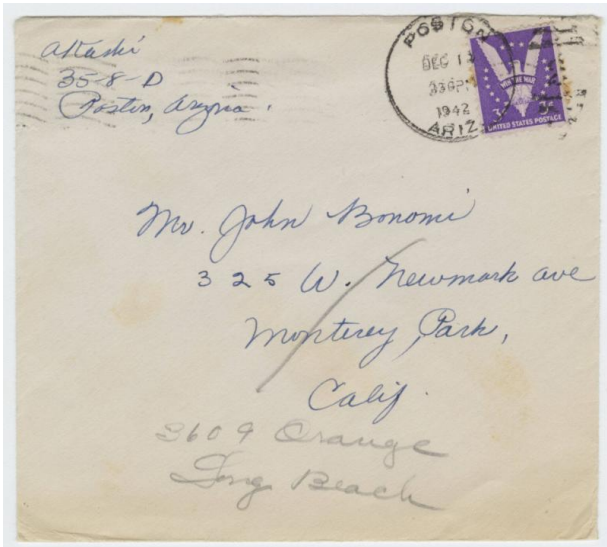 35-8-D
Poston, Arizona.
POSTON
DEC 1
1942
ARIZ.
WIN THE WAR
3¢ 3¢
UNITED STATES POSTAGE
Mr. John Bonomi
325 W. Newmark ave
Monterey Park,
Calif.
3609 Orange
Long Beach